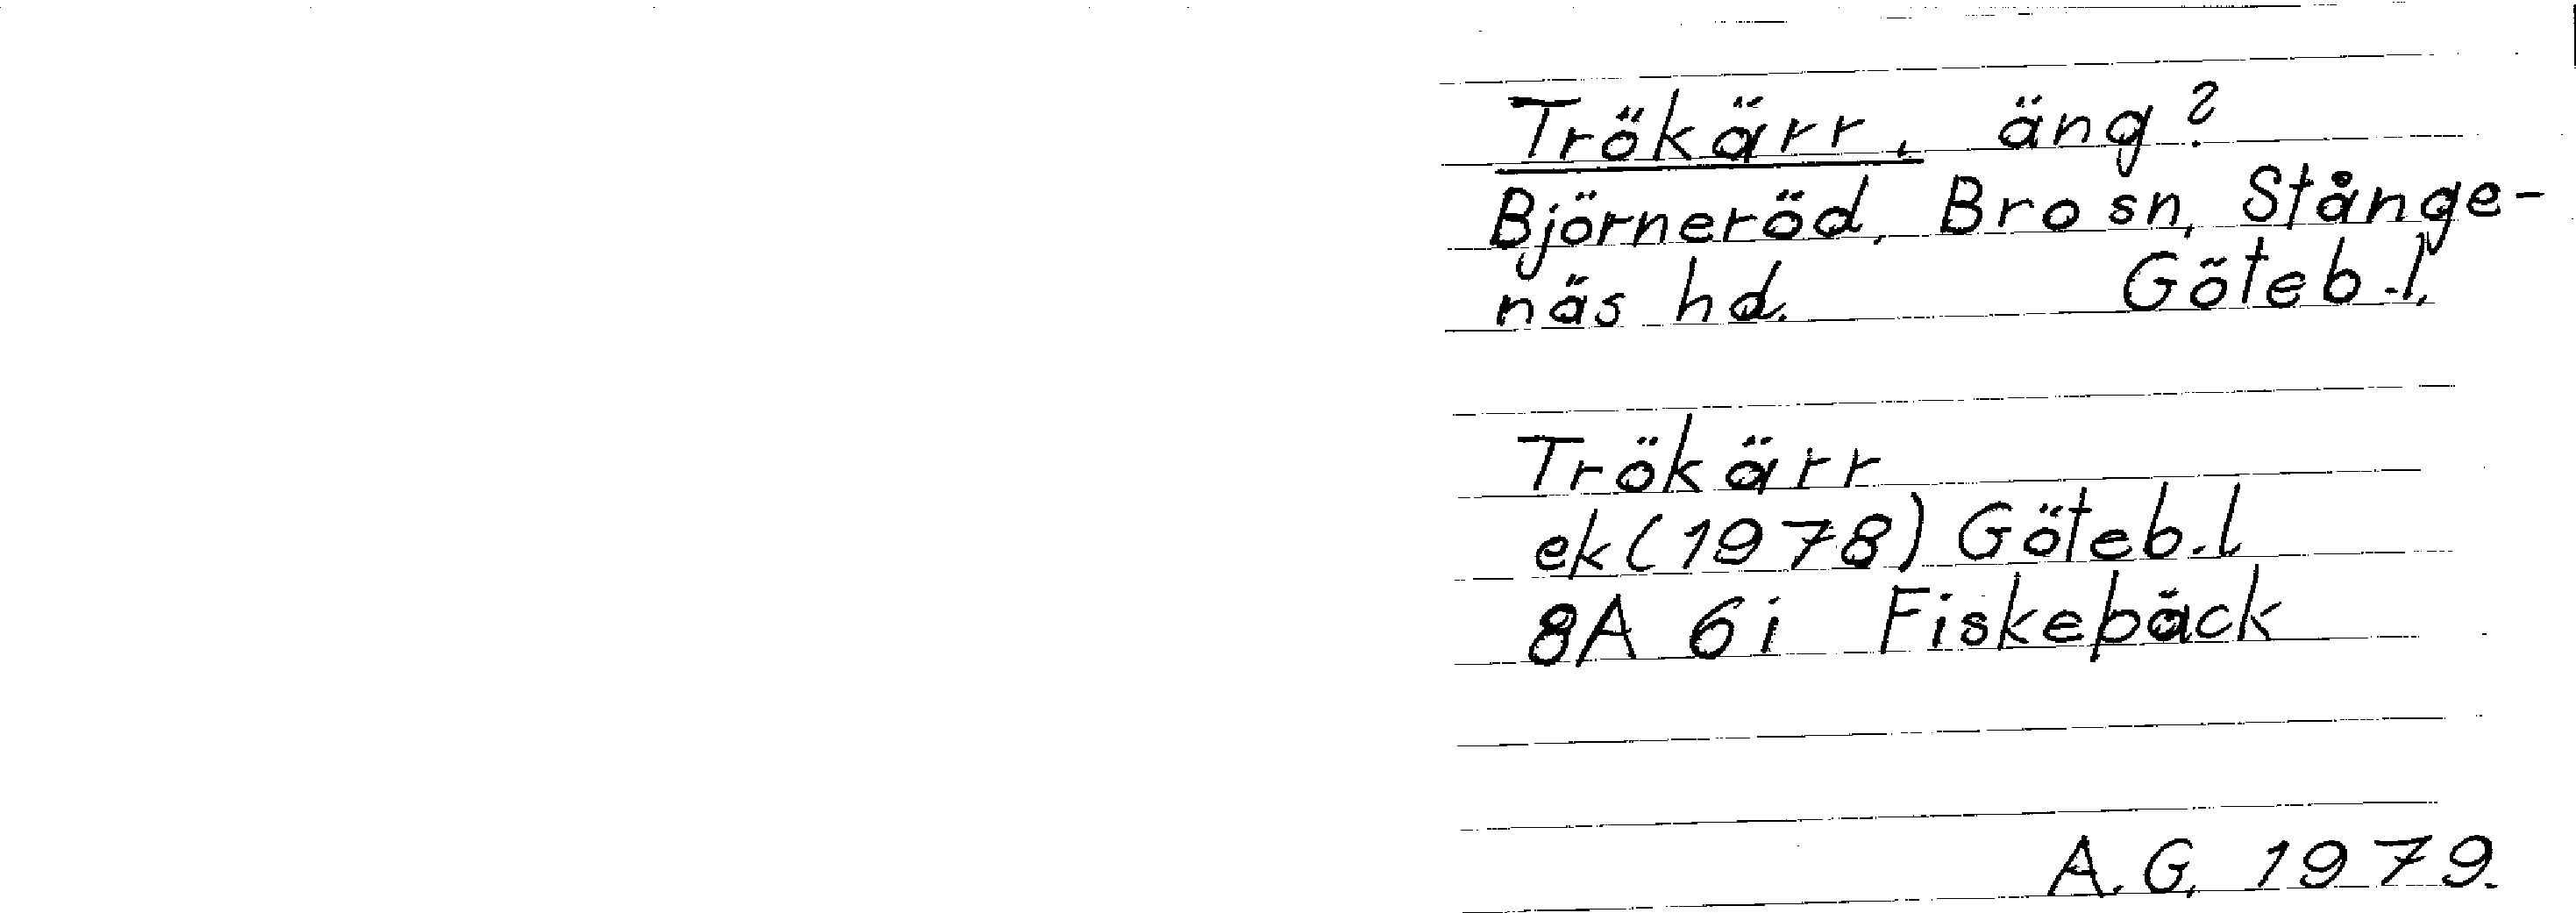 Trökärr, äng?
Björneröd, Bro sn, Stånge-
näs hd. Göteb.l.
Trökärr
ek (1978) Göteb.l
8A 6i Fiskebäck
A.G. 1979.